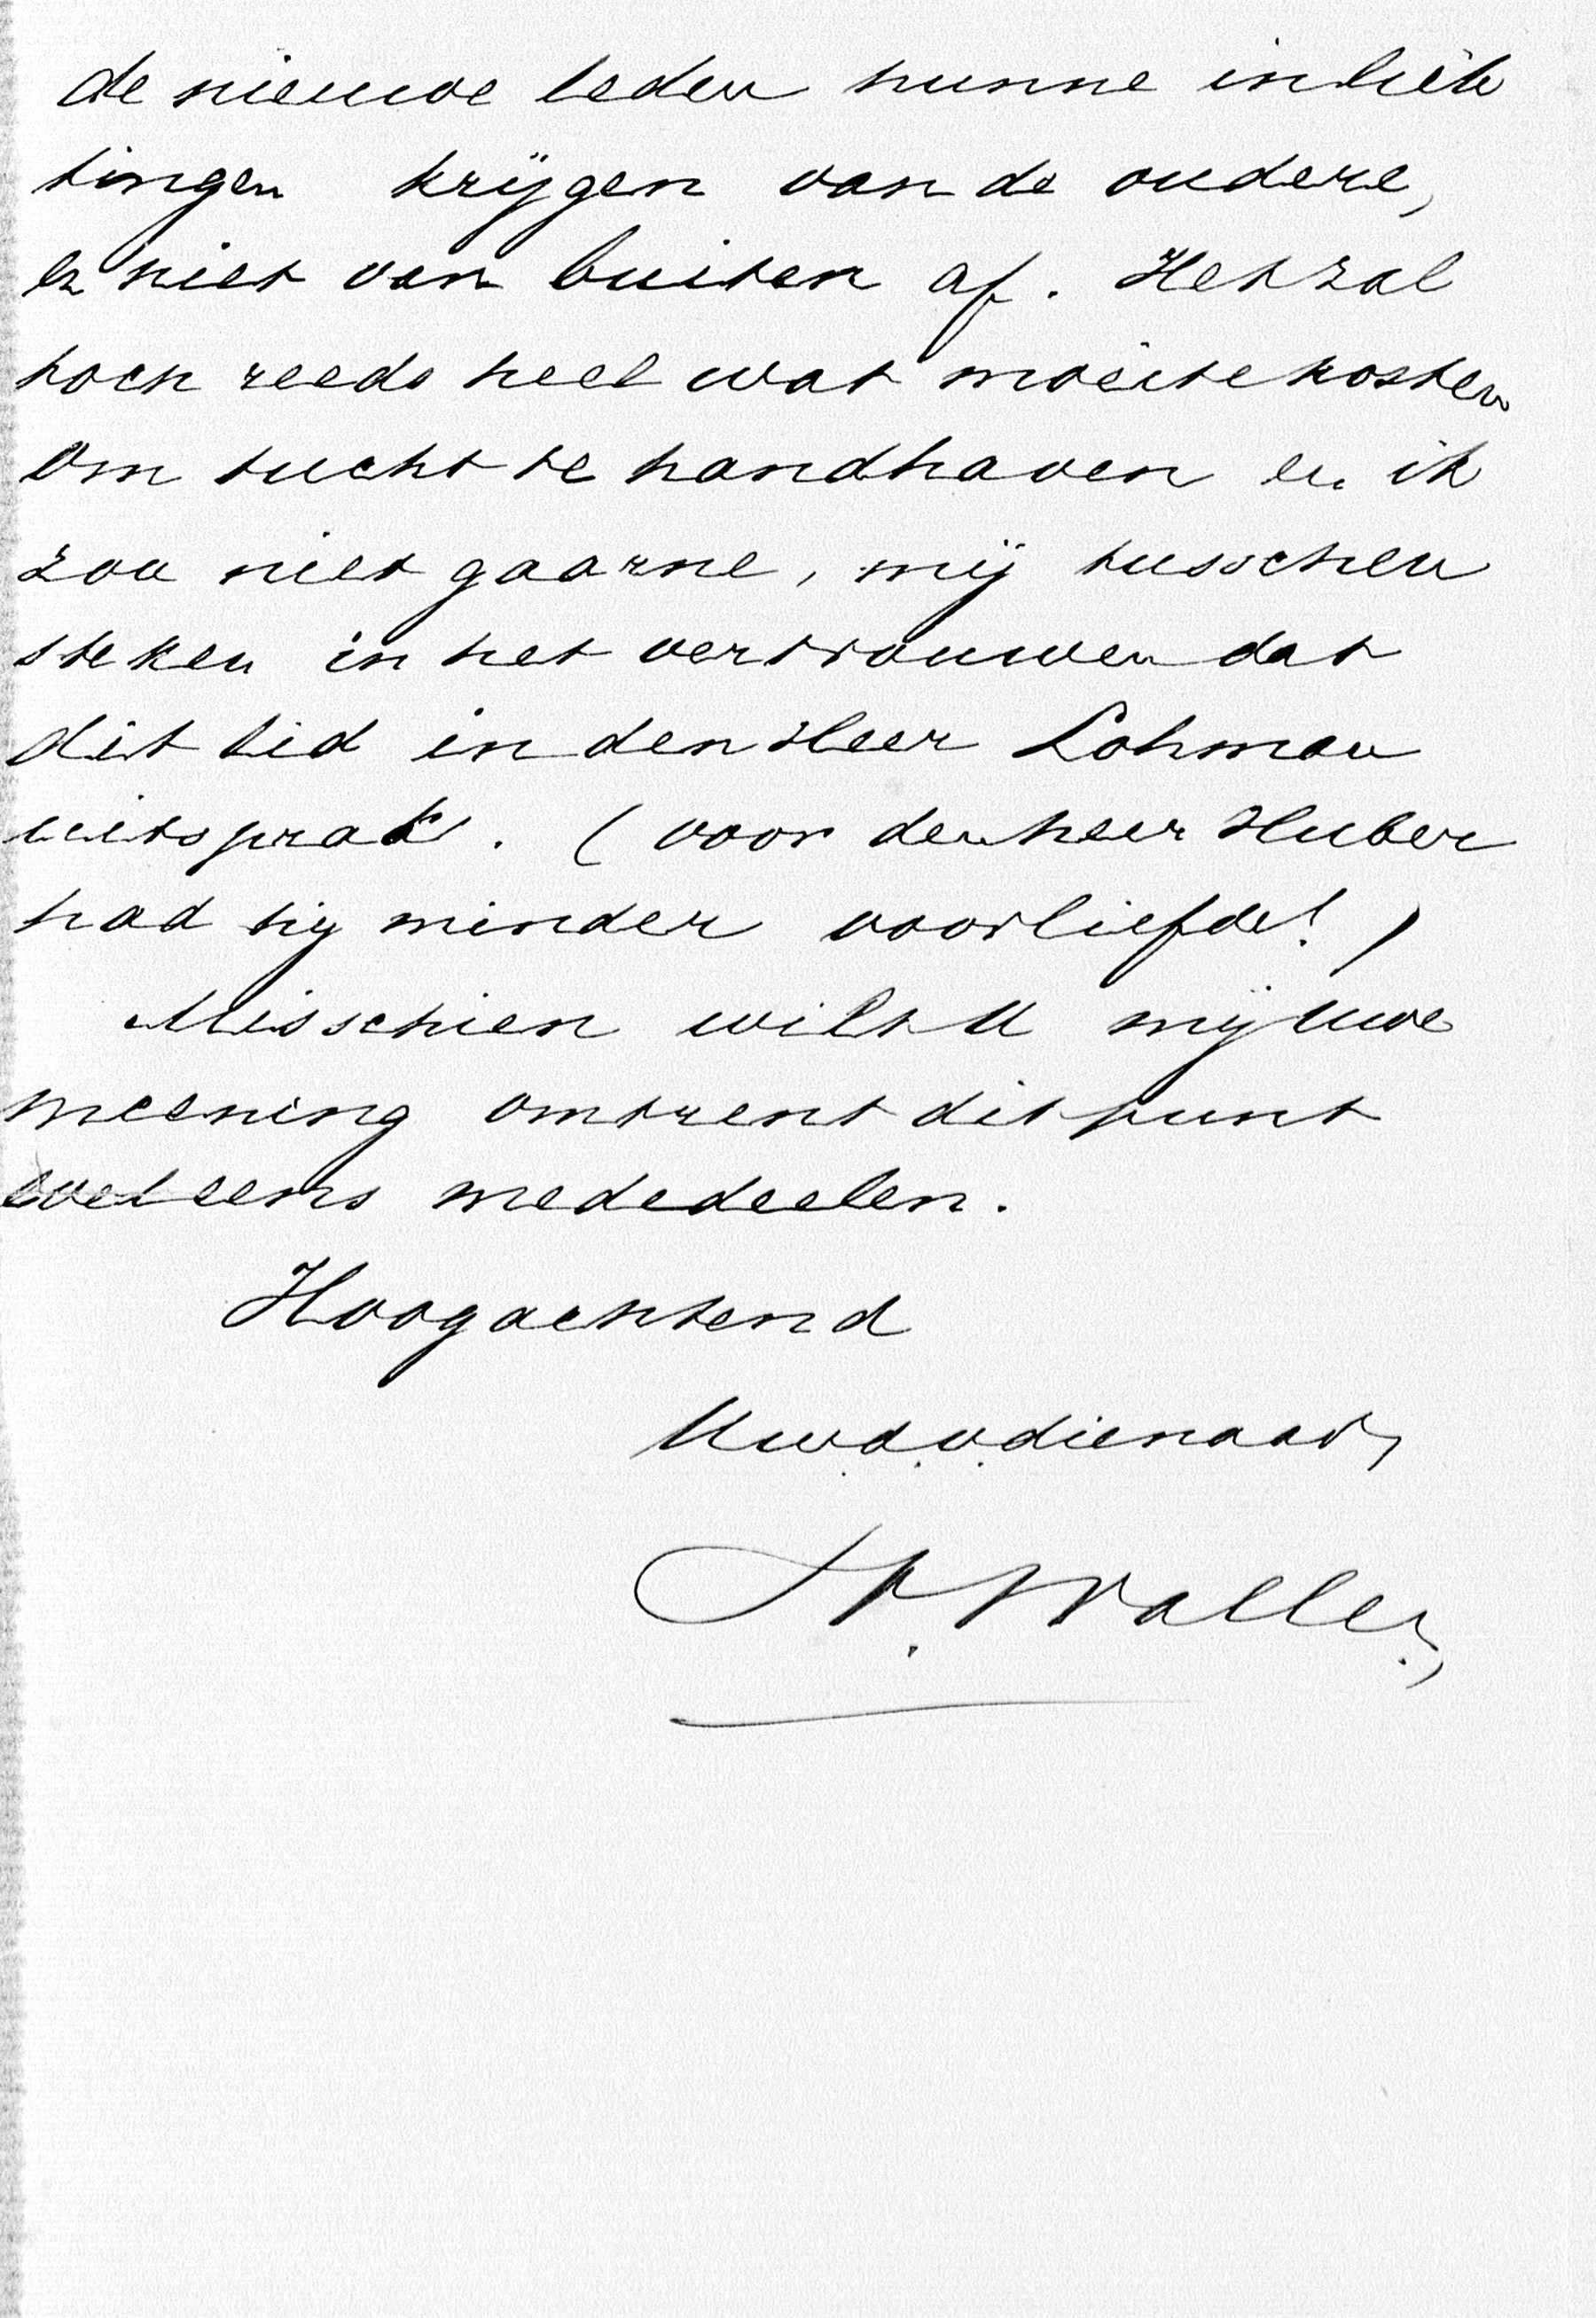 de nieuwe leden hunne inlich
tingen krijgen van de oudere,
en niet van buiten af. Het zal
toch reeds heel wat moeite kosten
om tucht te handhaven en ik
zou niet gaarne, mij tusschen
steken in het vertrouwen dat
dit lid in den Heer Lohman
uitsprak. (voor den heer Huber
had hij minder voorliefde!)
Misschien wilt U mij Uwe
meening omtrent dit punt
wel eens mededeelen.
Hoogachtend
Uw.d.v.dienaar,
Waller,